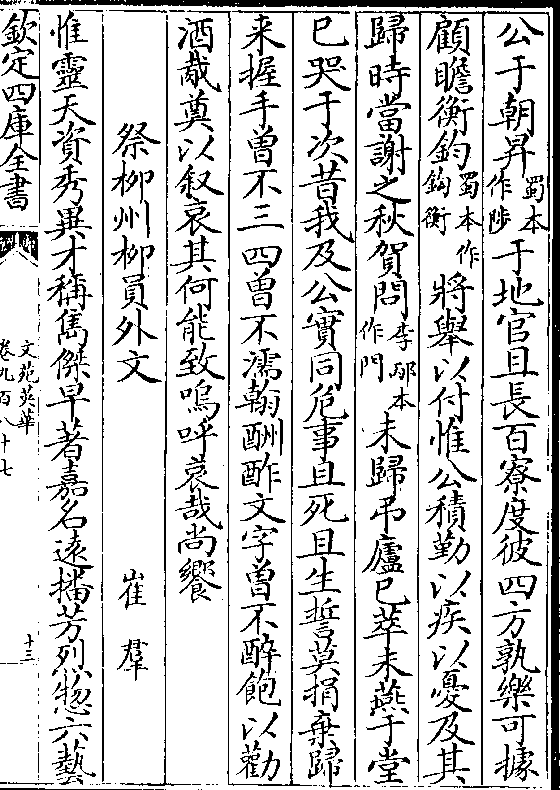 公于朝昇蜀本作陟于地官且長百寮度彼四方孰樂可據
顧瞻衡鈞蜀本作鈎衡將舉以付惟公積勤以疾以憂及其
歸時當謝之秋賀問李邴本作門未歸弔廬已萃未燕于堂
已哭于次昔我及公實同危事且死且生誓莫捐棄歸
来握手曾不三四曾不濡翰酬酢文字曾不醉飽以勸
酒胾奠以叙哀其何能致嗚呼哀哉尚饗
祭柳州柳員外文 崔羣
惟靈天資秀異才稱雋傑早著嘉名遠播芳烈惣六藝
欽定四庫全書
文苑英華
卷九百八十七
十三